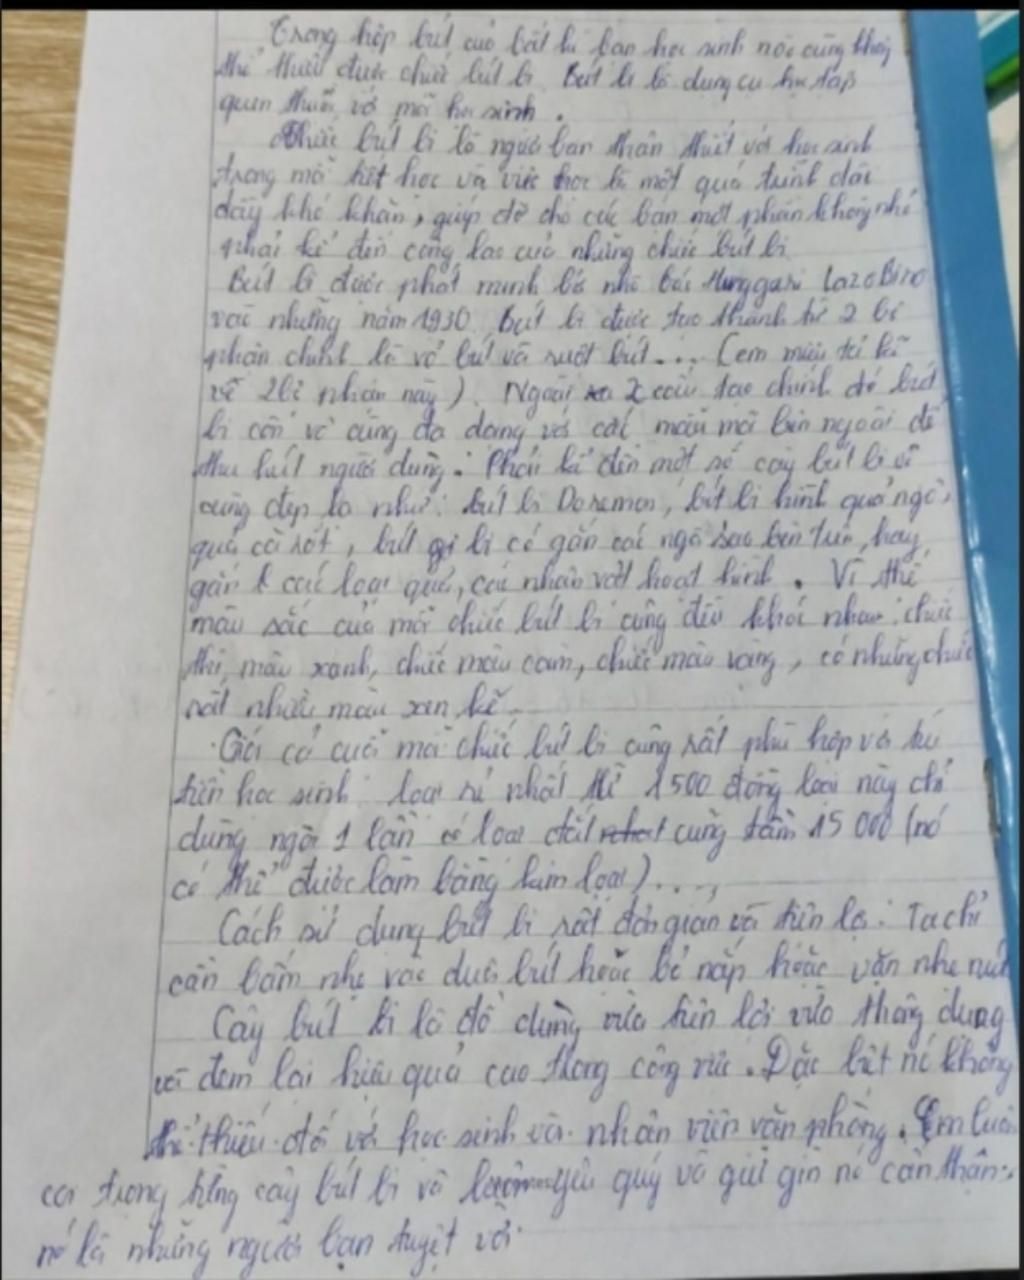 Trong hộp bút của bất kì bạn học sinh nào cũng không
thể thiếu được chiếc bút bi. Bút bi là dụng cụ học tập
quen thuộc với mỗi học sinh.
Chiếc bút bi là người bạn thân thiết với học sinh
trong mỗi tiết học và việc học là một quá trình dài
đầy khó khăn, giúp đỡ cho các bạn một phần không nhỏ
phải kể đến công lao của những chiếc bút bi.
Bút bi được phát minh bởi nhà báo Hunggari Lazo Biro
vào những năm 1930. Bút bi được tạo thành từ 2 bộ
phận chính là vỏ bút và ruột bút.... (em miêu tả kĩ
về 2 bộ phận này). Ngoài ra 2 cấu tạo chính đó bút
bi còn vô cùng đa dạng với các mẫu mã bên ngoài để
thu hút người dùng. Phải kể đến một số cây bút bi vô
cùng đẹp là như: bút bi Doremon, bút bi hình quả ngô,
quả cà rốt, bút bi có gắn cái ngôi sao bên trên, hay
gắn các loại quả, các nhân vật hoạt hình. Vì thế
màu sắc của mỗi chiếc bút bi cũng đều khác nhau: chiếc
thì màu xanh, chiếc màu cam, chiếc màu vàng, có những chiếc
rất nhiều màu xen kẽ.
Giá cả cuả mỗi chiếc bút bi cũng rất phù hợp với túi
tiền học sinh loại rẻ nhất thì 1500 đồng loại này chỉ
dùng ngòi 1 lần có loại đắt cũng tầm 15 000 (nó
có thể được làm bằng kim loại)....
Cách sử dụng bút bi rất đơn giản và tiện lợi: Ta chỉ
cần bấm nhẹ vào đuôi bút hoặc bỏ nắp hoặc vặn nhẹ nút
Cây bút bi là đồ dùng vừa tiện lợi vừa thông dụng
và đem lại hiệu quả cao trong công việc. Đặc biệt nó không
thể thiếu đối với học sinh và nhân viên văn phòng. Em luôn
coi trọng từng cây bút bi và yêu quý và giữ gìn nó cẩn thận:
nó là những người bạn tuyệt vời.